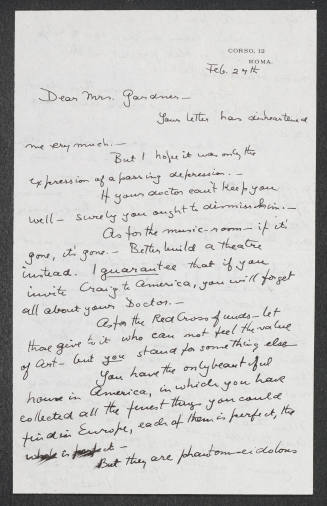 CORSO, 12
ROMA.
Feb. 27th
Dear Mrs. Gardner —
Your letter has disheartened
me very much. —
But I hope it was only the
expression of a passing depression. —
If your doctor can't keep you
well — surely you ought to dismiss him. —
As for the music-room — if it's
gone, it's gone. — Better build a theatre
instead. I guarantee that if you
invite Craig to America, you will forget
all about your Doctor. —
As for the Red Cross funds — let
those give to it who can not feel the value
of Art — but you stand for something else
You have the only beautiful
house in America, in which you have
collected all the finest things you could
find in Europe, each of them is perfect, the
whole is perfect —
But they are phantom-eidolons